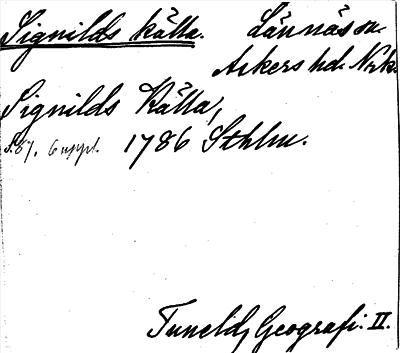 Signilds källa. Lännäs sn.
Askers hd. Nrk.
Signilds Källa,
S. 87. 6 uppl. 1786 Sthlm.
Tuneld, Geografi. II.